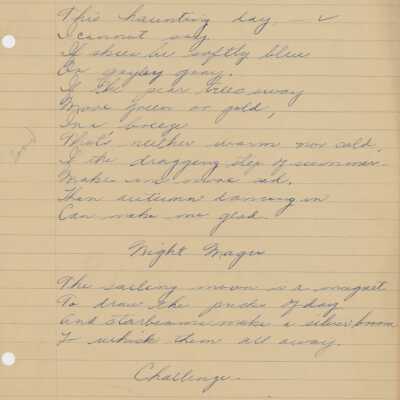 This haunting day, — ✓
I cannot say
If skies be softly blue
Or gayley gray.
If the pear trees sway
More green or gold,
In a breeze
That's neither warm nor cold,
If the dragging step of summer
Makes me more sad,
Than autumn dancing in
Can make me glad.
Night Magic
The sailing moon is a magnet
To draw the pricks of day
And starbeams make a silver broom
To whisk them all away.
Challenge.